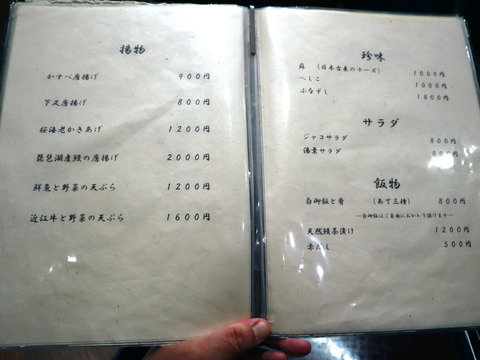 揚物
かすべ唐揚げ 900円
下足唐揚げ 800円
桜海老かきあげ 1200円
琵琶湖産鰻の唐揚げ 2000円
鮮魚と野菜の天ぷら 1200円
近江牛と野菜の天ぷら 1600円
珍味
蘇 (日本古来のチーズ) 1000円
へしこ 1000円
ふなずし 1800円
サラダ
ジャコサラダ 800円
湯葉サラダ 800円
飯物
白御飯と肴 (あて三種) 800円
―白御飯はご自由におかわり頂けます―
天然鰻茶漬け 1200円
赤だし 500円